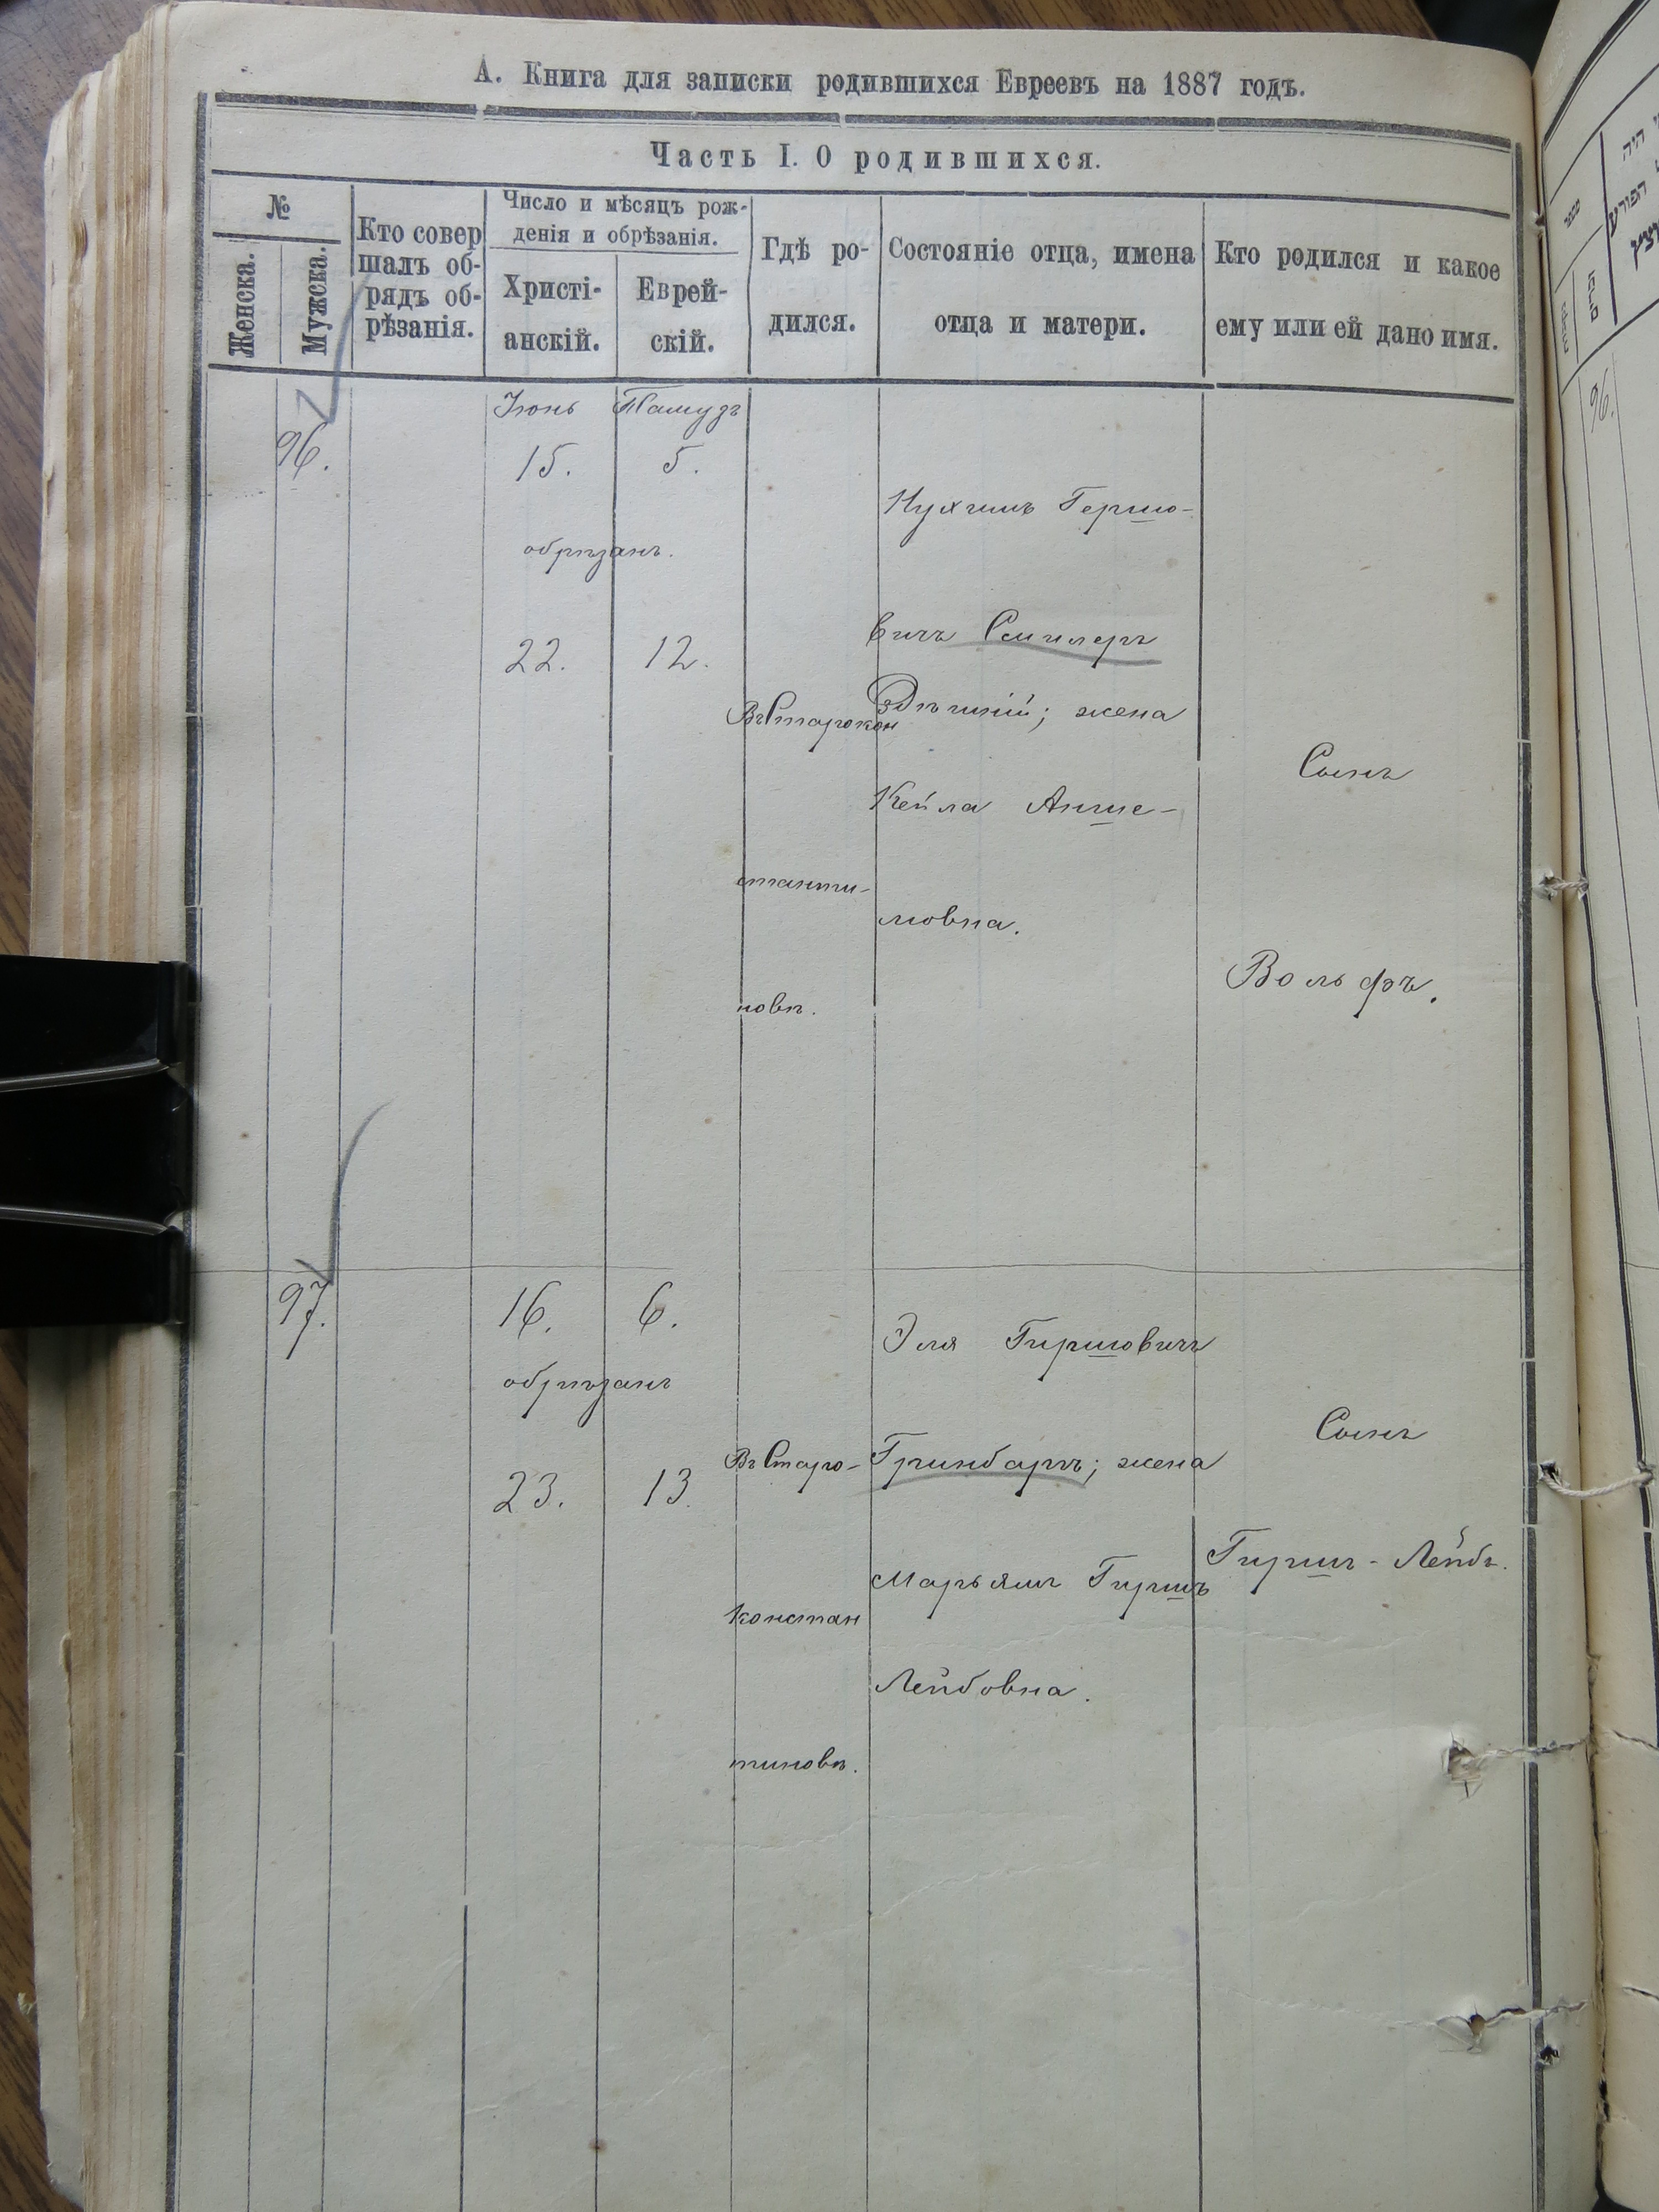 А. Книга для записки родившихся Евреевъ на 1887 годъ.
Часть I. О родившихся.
№
Женска.
Мужска.
Кто совер
шалъ об-
рядъ об-
рѣзанія.
Число и мѣсяцъ рож-
денія и обрѣзанія.
Христі-
анскій.
Еврей-
скій.
Гдѣ ро-
дился.
Состояніе отца, имена
отца и матери.
Кто родился и какое
ему или ей дано имя.
96.
Іюнь Тамузъ
15. 5.
обрѣзанъ.
22. 12.
Въ Старокон
станти-
новѣ.
Нухимъ Гершо-
вичъ
Здѣшній; жена
Кейла Анше-
ловна.
Сынъ
Вольфъ.
97.
16. 6.
обрѣзанъ
23. 13.
Въ Старо-
констан
тиновѣ.
Эля Гиршовичъ
Гринбартъ; жена
Марьямъ Гиршъ
Лейбовна.
Сынъ
Гиршъ-Лейбъ.
96.